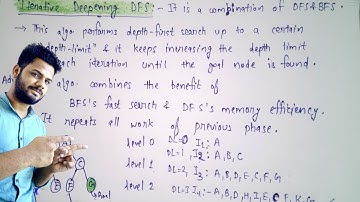 Iterative Deepening DFS :- It is a combination of DFS & BFS.
→ This algo performs depth-first search up to a certain
"depth-limit" & it keeps increasing the depth limit
each iteration until the goal node is found.
algo. combines the benefit of
BFS's fast search & DFS's memory efficiency.
It repeats all work of previous phase.
level 0 DL=0 I1: A
level 1 DL=1, I2: A, B, C
DL=2, I3: A, B, D, E, C, F, G
level 2 DL=3 I4:- A, B, D, H, I, E, C, F, K, G
C
G
Goal